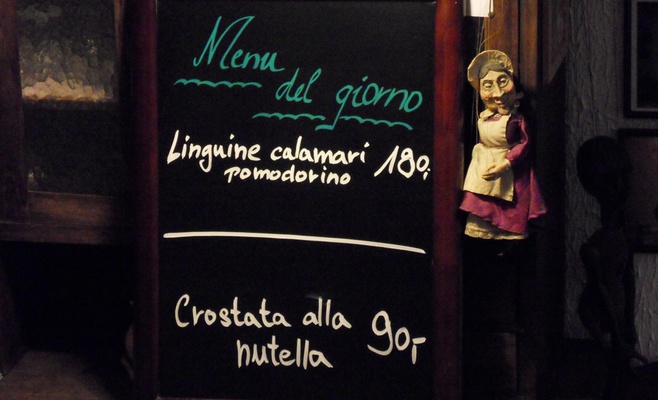 Menu
del giorno
Linguine calamari 180,-
pomodorino
Crostata alla 90,-
nutella